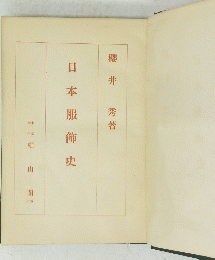 櫻井秀著
日本服飾史
山閣